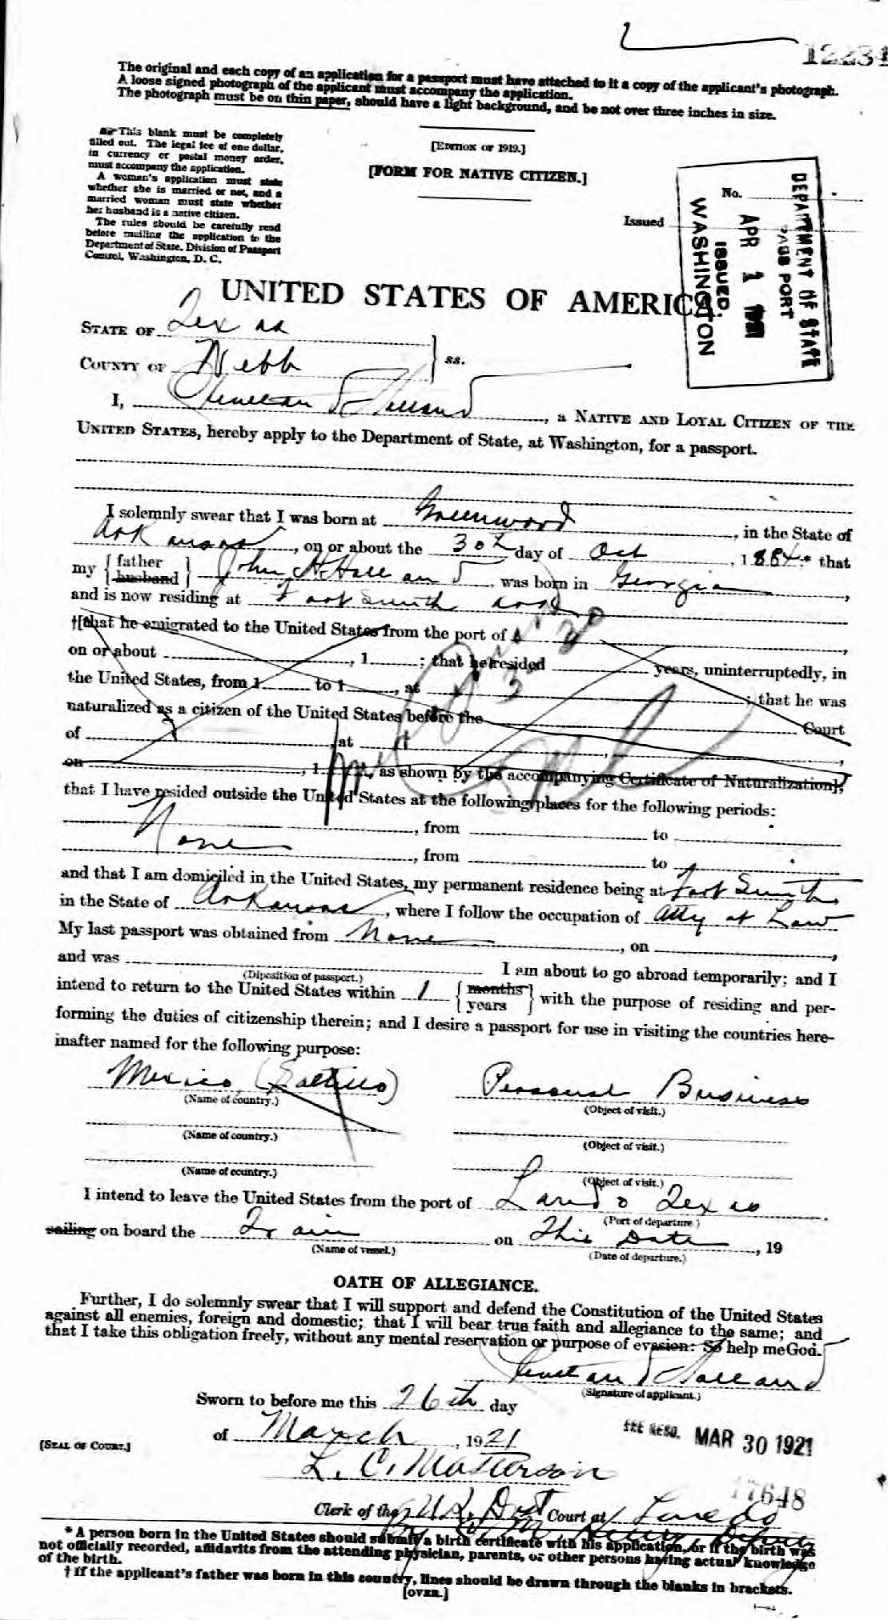 12234
The original and each copy of an application for a passport must have attached to it a copy of the applicant's photograph.
A loose signed photograph of the applicant must accompany the application.
The photograph must be on thin paper, should have a light background, and be not over three inches in size.
This blank must be completely
filled out. The legal fee of one dollar,
in currency or postal money order,
must accompany the application.
A woman's application must state
whether she is married or not, and a
married woman must state whether
her husband is a native citizen.
The rules should be carefully read
before mailing the application to the
Department of State, Division of Passport
Control, Washington, D. C.
[EDITION OF 1919.]
[FORM FOR NATIVE CITIZEN.]
No.
Issued
DEPARTMENT OF STATE
PASSPORT
APR 1 1921
ISSUED.
WASHINGTON
UNITED STATES OF AMERICA.
STATE OF Texas
COUNTY OF Webb
ss.
I, Holland, a NATIVE AND LOYAL CITIZEN OF THE
UNITED STATES, hereby apply to the Department of State, at Washington, for a passport.
I solemnly swear that I was born at Greenwood, in the State of
Arkansas, on or about the 30th day of Oct, 1884* that
my {father husband} John H Holland was born in Georgia,
and is now residing at Fort Smith Ark
†[that he emigrated to the United States from the port of
on or about, 1; that he resided years, uninterruptedly, in
the United States, from 1 to 1, at; that he was
naturalized as a citizen of the United States before the Court
of at,
on, 1, as shown by the accompanying Certificate of Naturalization];
that I have resided outside the United States at the following places for the following periods:
, from to
None, from to
and that I am domiciled in the United States, my permanent residence being at Fort Smith
in the State of Arkansas, where I follow the occupation of Atty at Law
My last passport was obtained from None, on,
and was I am about to go abroad temporarily; and I
(Diposition of passport.)
intend to return to the United States within 1 {months years} with the purpose of residing and per-
forming the duties of citizenship therein; and I desire a passport for use in visiting the countries here-
inafter named for the following purpose:
Mexico (Saltillo) Personal Business
(Name of country.) (Object of visit.)
(Name of country.) (Object of visit.)
(Name of country.) (Object of visit.)
I intend to leave the United States from the port of Laredo Texas
(Port of departure.)
sailing on board the Train on This Date, 19
(Name of vessel.) (Date of departure.)
OATH OF ALLEGIANCE.
Further, I do solemnly swear that I will support and defend the Constitution of the United States
against all enemies, foreign and domestic; that I will bear true faith and allegiance to the same; and
that I take this obligation freely, without any mental reservation or purpose of evasion: So help me God.
Holland
(Signature of applicant.)
Sworn to before me this 26th day
of March, 1921
MAR 30 1921
[SEAL OF COURT.]
L. C. Masterson
77648
Clerk of the U.S. Dist Court at Laredo
By Deputy
* A person born in the United States should submit a birth certificate with his application, or if the birth was
not officially recorded, affidavits from the attending physician, parents, or other persons having actual knowledge
of the birth.
† If the applicant's father was born in this country, lines should be drawn through the blanks in brackets.
[OVER.]